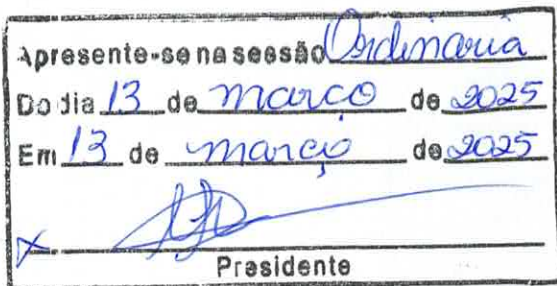 Apresente-se na sessão Ordinaria
Do dia 13 de março de 2025
Em 13 de março de 2025
Presidente